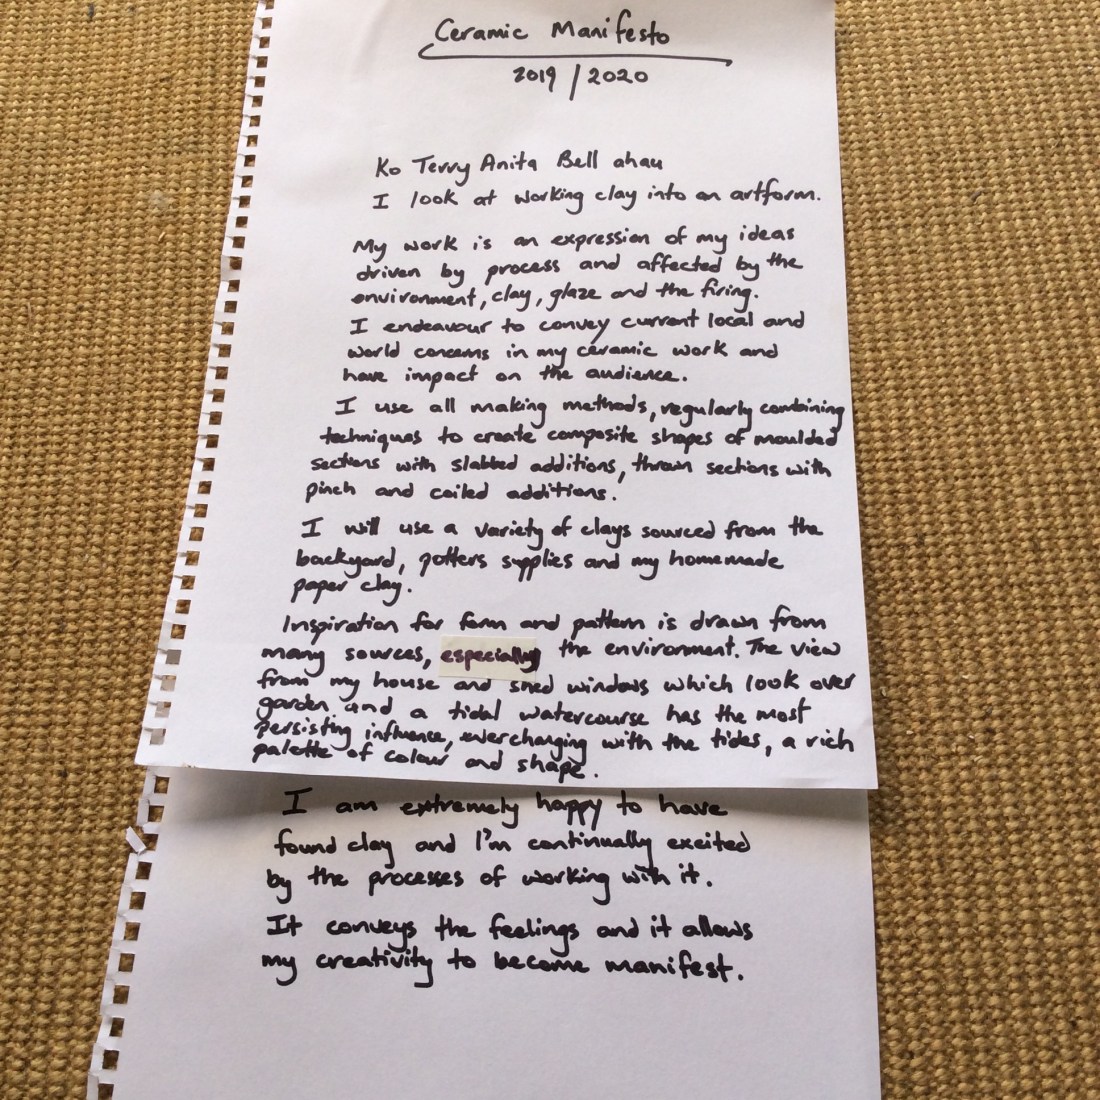 Ceramic Manifesto
2019/2020
Ko Terry Anita Bell ahau
I look at working clay into an artform.
My work is an expression of my ideas
driven by process and affected by the
environment, clay, glaze and the firing.
I endeavour to convey current local and
world concerns in my ceramic work and
have impact on the audience.
I use all making methods, regularly combining
techniques to create composite shapes of moulded
sections with slabbed additions, thrown sections with
pinch and coiled additions.
I will use a variety of clays sourced from the
backyard, potters supplies and my homemade
paper clay.
Inspiration for form and pattern is drawn from
many sources, especially the environment. The view
from my house and shed windows which look over
garden and a tidal watercourse has the most
persisting influence, everchanging with the tides, a rich
palette of colour and shape.
I am extremely happy to have
found clay and I'm continually excited
by the processes of working with it.
It conveys the feelings and it allows
my creativity to become manifest.